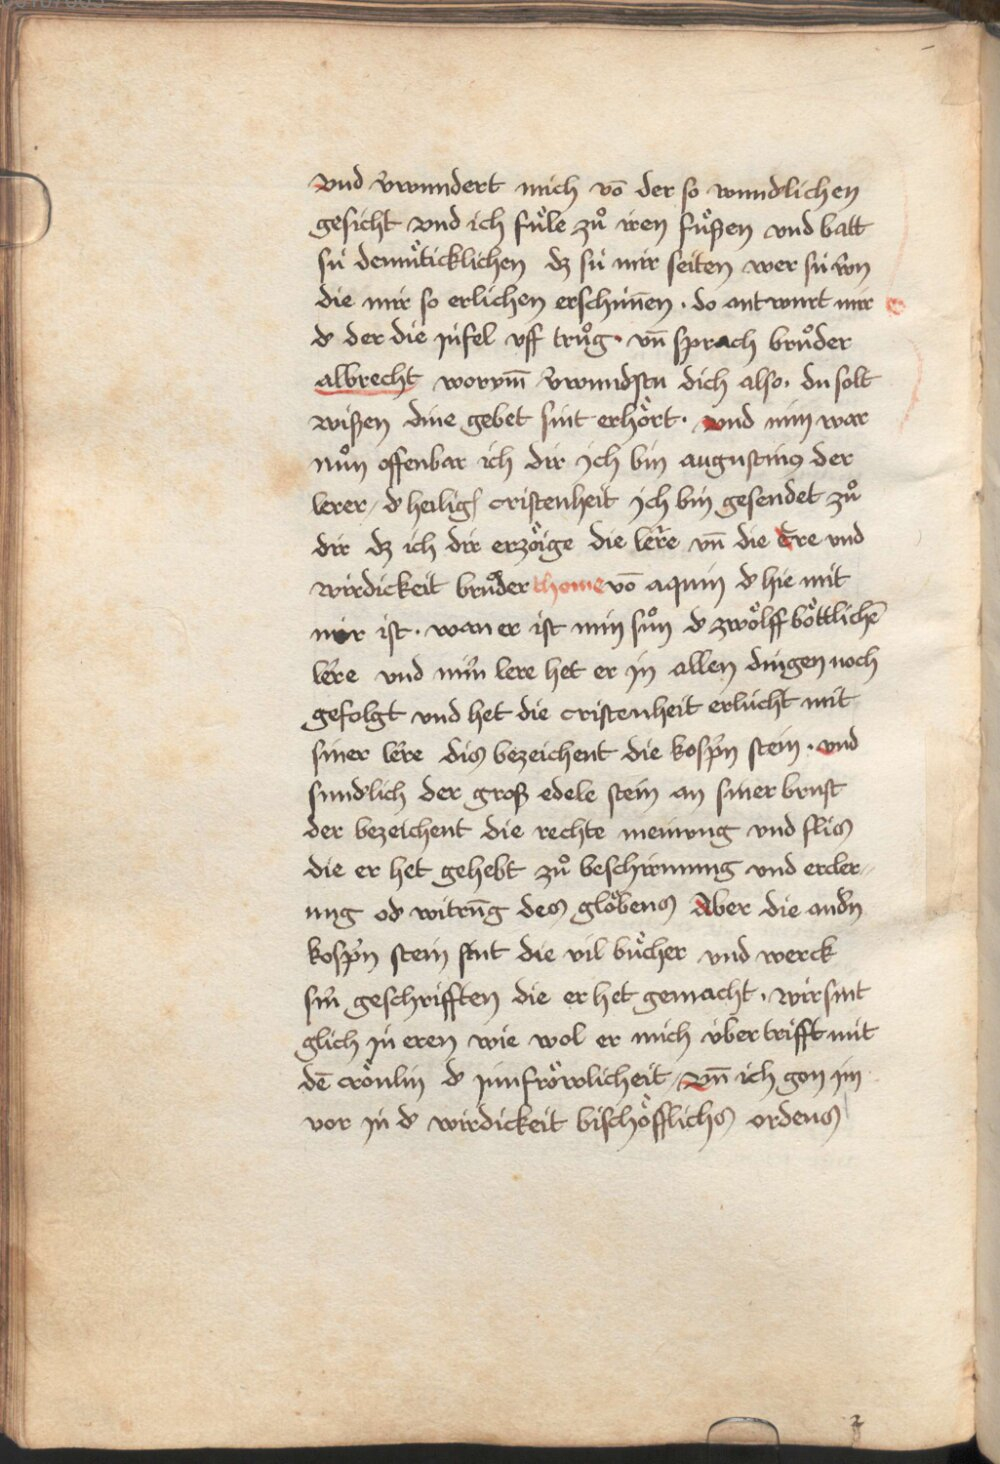 vnd v̓wundert mich vō der so wundlichen
gesicht vnd ich fuͤle zuͦ iren fuͤßen vnd batt
sú demuͤticklichen dz sú mir seiten wer sú wn
die mir so erlichen erschinēn · do antwurt mir
dˢ der die jnfel vff truͦg · vn̄ sprach bruͦder
albrecht worvm̄ v̓wundstu dich also · du solt
wißen dine gebet sint erhoͤrt · vnd nim war
nuͦn offenbar ich dir jch bin augustinꝯ der
lerer / dˢ heilig cristenheit jch bin gesendet zuͦ
dir dz ich dir erzoͤige die lere vn̄ die Ere vnd
wirdickeit bruͦder thome vō aquin dˢ hie mit
mir ist · wan er ist min suͦn dˢ zwoͤlff boͤttlichē
lere vnd min̓ lere het er jn allen dingen noch
gefolgt vnd het die cristenheit erlúcht mit
siner lere dis bezeichent die kosp̓n stein · vnd
sundlich der groß edele stein an siner brust
der bezeichent die rechte meinung vnd flis
die er het gehebt zuͦ beschirmung vnd ercler⸗
ung od̓ witrūg des gloͤbens Aber die and̓n
kosp̓n stein sint die vil buͤcher vnd werck
sin̓ geschrifften die er het gemacht · wir sint
glich jn eren wie wol er mich úbertrifft mit
dē croͤnlin dˢ junfroͤwlicheit / vn̄ ich gon jm
vor jn dˢ wirdickeit bischoͤfflichs ordens